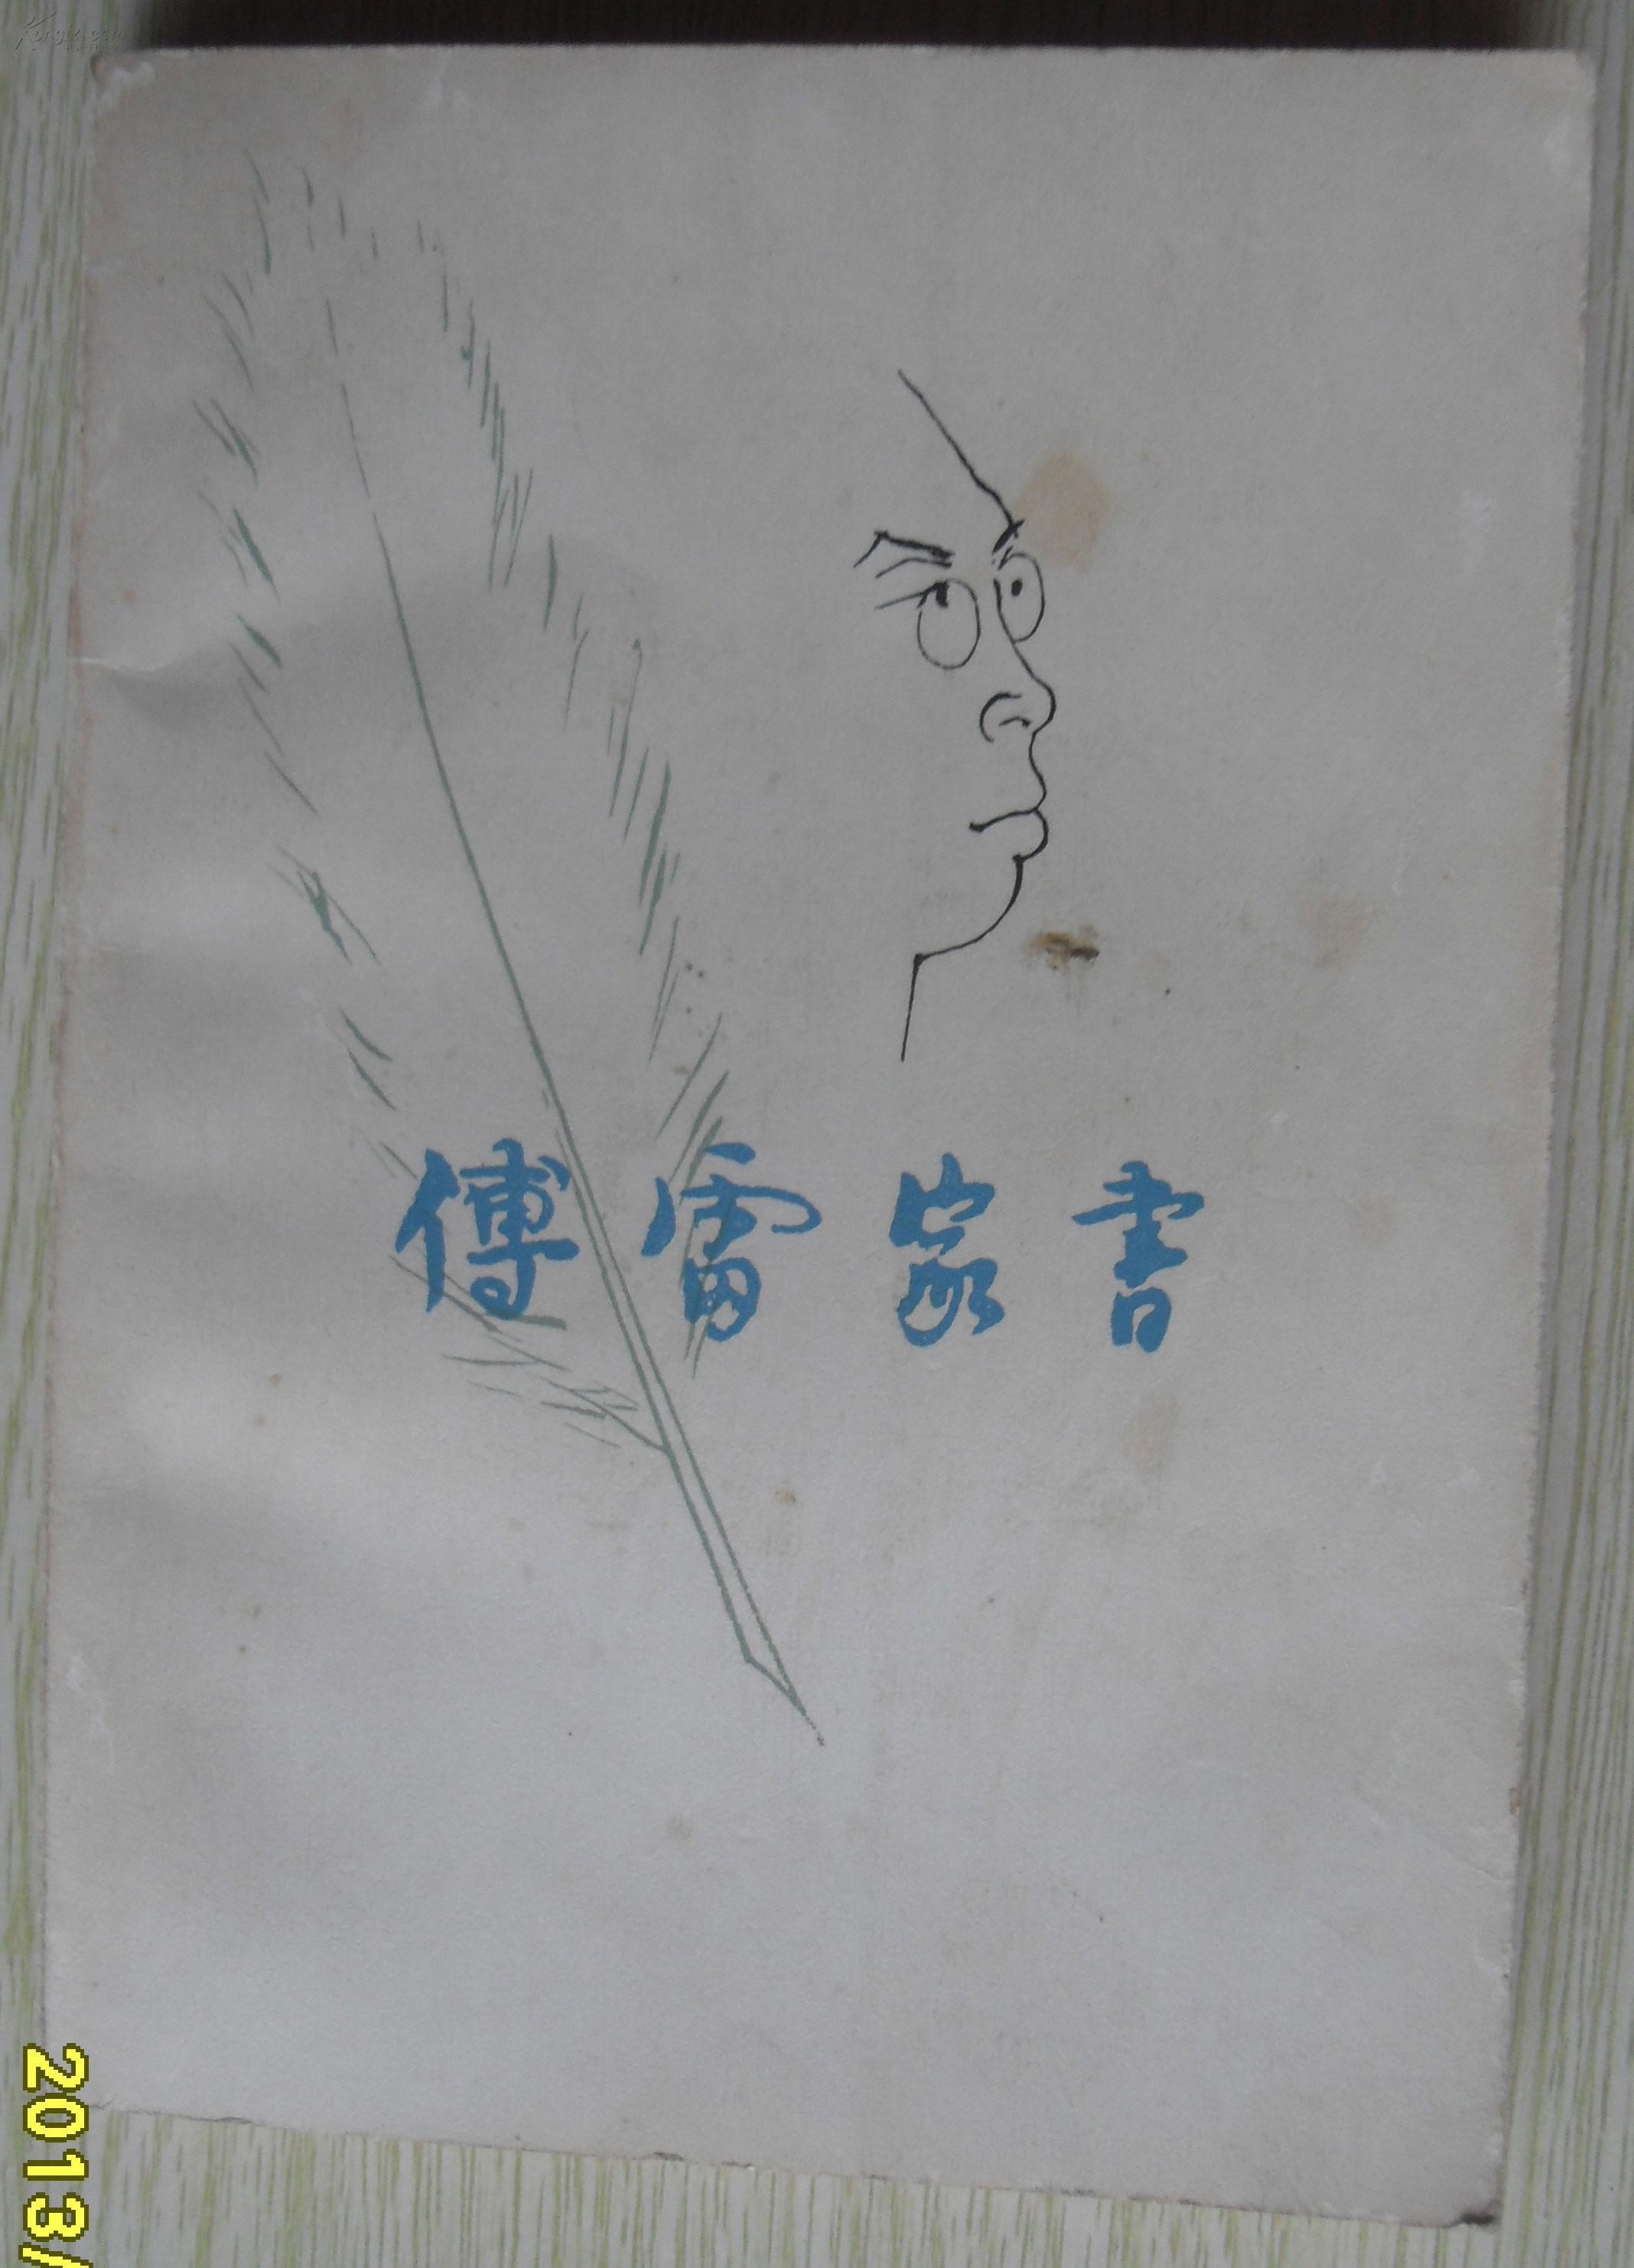 傅雷家書
2013/